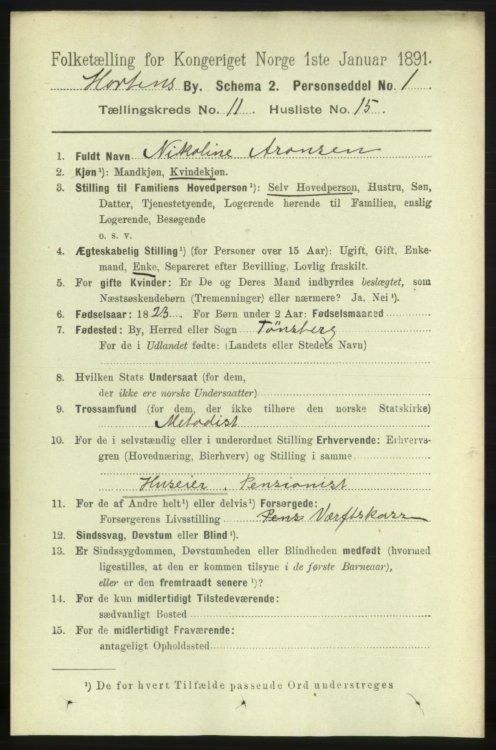 Folketælling for Kongeriget Norge 1ste Januar 1891.
Hortens By. Schema 2. Personseddel No. 1
Tællingskreds No. 11 Husliste No. 15.
1. Fuldt Navn Nikoline Aronsen
2. Kjøn¹): Mandkjøn, Kvindekjøn.
3. Stilling til Familiens Hovedperson¹): Selv Hovedperson, Hustru, Søn,
Datter, Tjenestetyende, Logerende hørende til Familien, enslig
Logerende, Besøgende
o. s. v.
4. Ægteskabelig Stilling¹) (for Personer over 15 Aar): Ugift, Gift, Enke-
mand, Enke, Separeret efter Bevilling, Lovlig fraskilt.
5. For gifte Kvinder: Er De og Deres Mand indbyrdes beslægtet, som
Næstsøskendebørn (Tremenninger) eller nærmere? Ja, Nei¹).
6. Fødselsaar: 1823. For Børn under 2 Aar: Fødselsmaaned
7. Fødested: By, Herred eller Sogn Tönsberg
For de i Udlandet fødte: (Landets eller Stedets Navn)
8. Hvilken Stats Undersaat (for dem,
der ikke ere norske Undersaatter)
9. Trossamfund (for dem, der ikke tilhøre den norske Statskirke)
Metodist
10. For de i selvstændig eller i underordnet Stilling Erhvervende: Erhvervs-
gren (Hovednæring, Bierhverv) og Stilling i samme
Huseier, Pensionist
11. For de af Andre helt¹) eller delvis¹) Forsørgede:
Forsørgerens Livsstilling Pens Værftskass
12. Sindssvag, Døvstum eller Blind¹).
13. Er Sindssygdommen, Døvstumheden eller Blindheden medfødt (hvormed
ligestilles, at den er kommen tilsyne i de første Barneaar),
eller er den fremtraadt senere¹)?
14. For de kun midlertidigt Tilstedeværende:
sædvanligt Bosted
15. For de midlertidigt Fraværende:
antageligt Opholdssted
¹) De for hvert Tilfælde passende Ord understreges